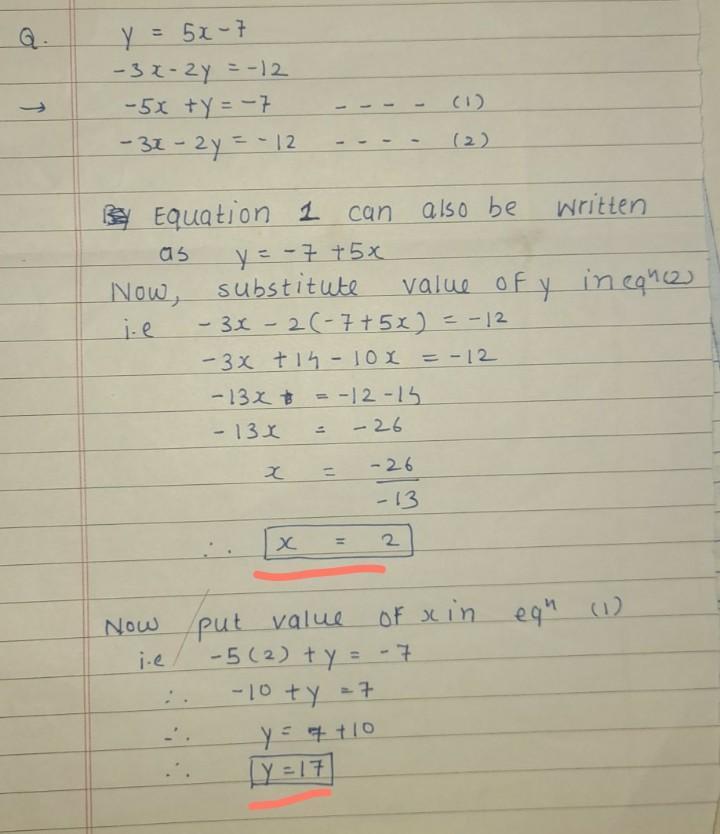 Q. y = 5x-7
-3x-2y = -12
→ -5x + y = -7 ---- (1)
-3x - 2y = -12 ---- (2)
Equation 1 can also be written
as y = -7 +5x
Now, substitute value of y in eqⁿ(2)
i.e -3x - 2(-7+5x) = -12
-3x + 14 - 10x = -12
-13x = -12 -14
-13x = -26
x = -26
-13
∴ x = 2
Now put value of x in eqⁿ (1)
i.e -5(2) + y = -7
∴ -10 + y = 7
∴ y = 7 +10
∴ y = 17